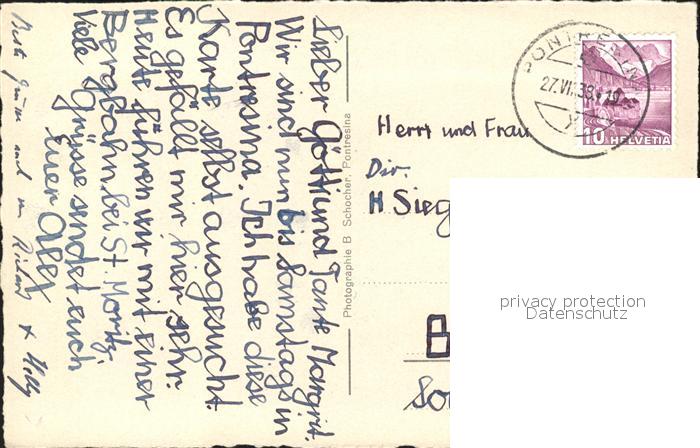 Lieber Götti und Tante Margrit.
Wir sind nun bis Samstags in
Pontresina. Ich habe diese
Karte selbst ausgesucht.
Es gefällt mir hier sehr.
Heute führen wir mit einer
Bergbahn bei St. Moritz.
Viele Grüsse sendet euch
Euer Alex
Photographie B Schocher, Pontresina
PONTRESINA
27.VII.38
10 HELVETIA
Herrn und Frau
Dir.
H Sieg
B
So
privacy protection
Datenschutz